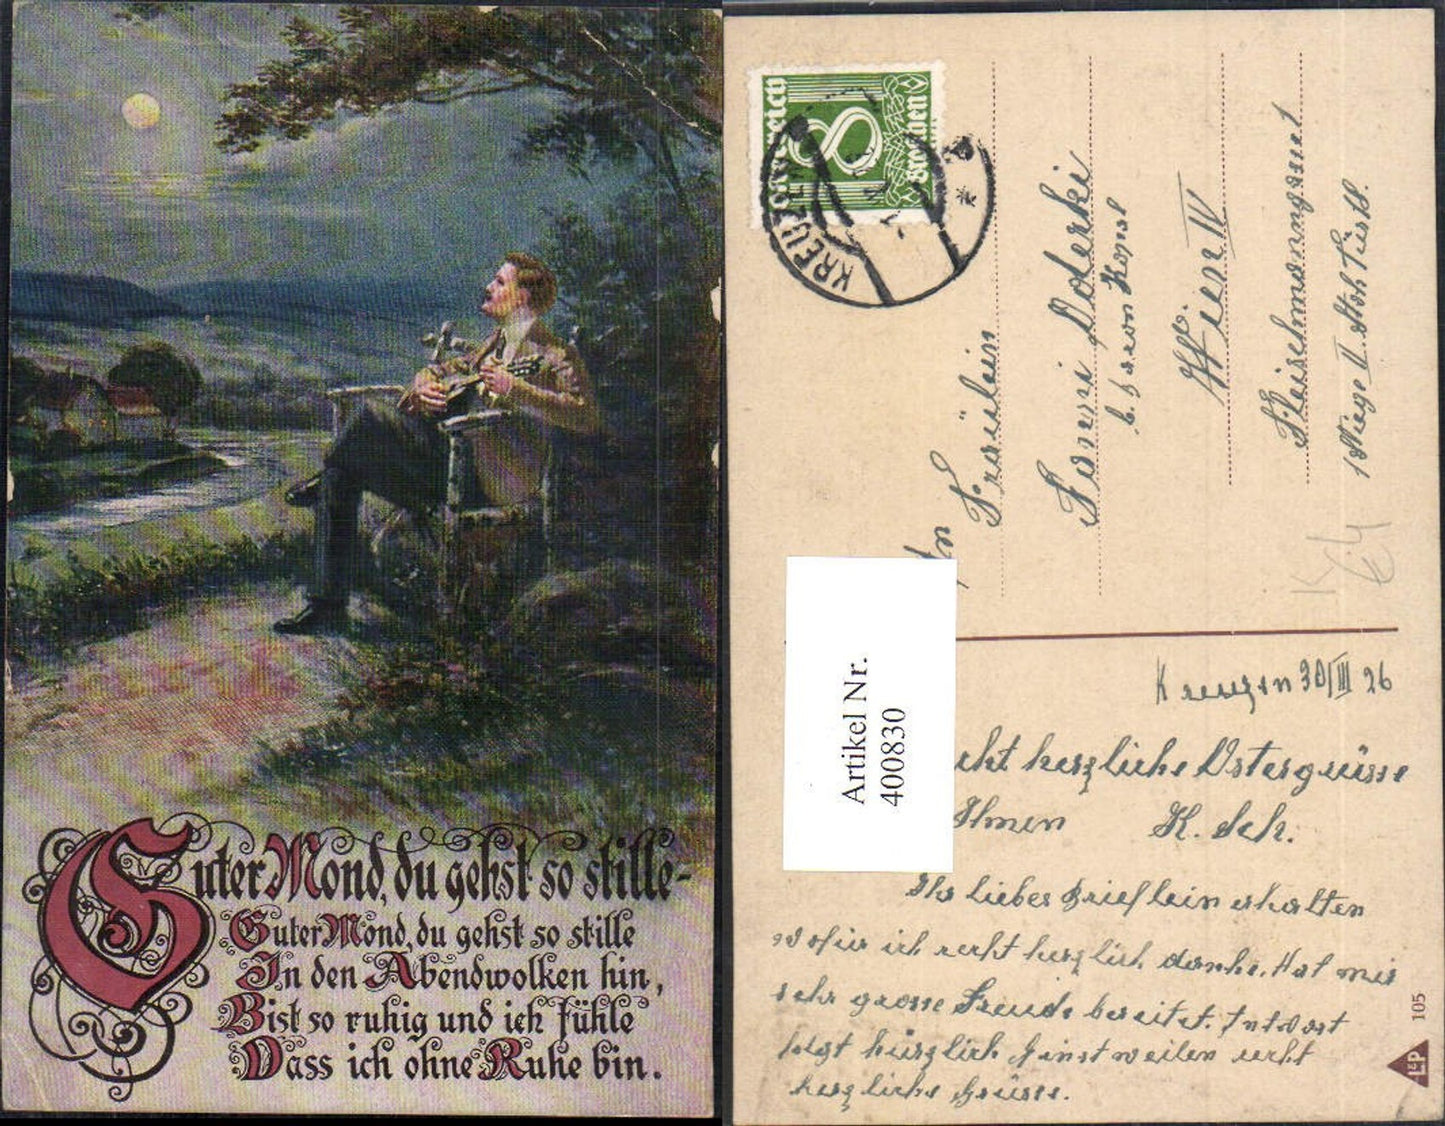 Guter Mond, du gehst so stille-
Guter Mond, du gehst so stille
In den Abendwolken hin,
Bist so ruhig und ich fühle
Dass ich ohne Ruhe bin.
8
Groschen
KREUZEN
An
Fräulein
b. Baron
Wien IV
Artikel Nr.
400830
Kreuzen 30/III 26
recht herzliche Ostergrüsse
Ihnen K. Sch.
Ihr liebes Brieflein erhalten
wofür ich recht herzlich danke. Hat mir
sehr grosse Freude bereitet. Antwort
folgt kürzlich Einstweilen recht
herzliche Grüsse.
105
L&P